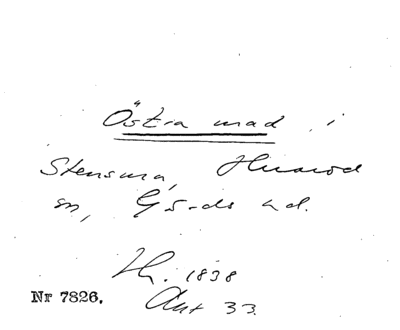 Östra mad, i
Stensma, Huaröd
sn, Gärds hd.
Hh. 1838
Akt 33.
Nr 7826.